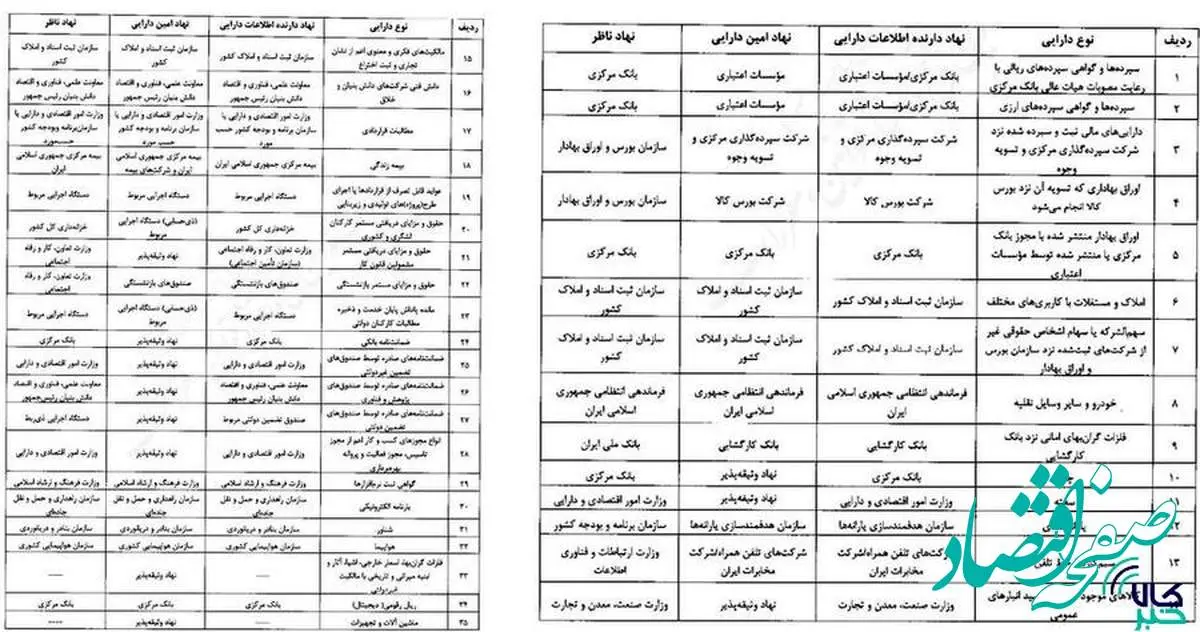 ردیف نوع دارایی نهاد دارنده اطلاعات دارایی نهاد امین دارایی نهاد ناظر
۱ سپرده‌ها و گواهی سپرده‌های ریالی با رعایت مصوبات هیات عالی بانک مرکزی بانک مرکزی/مؤسسات اعتباری مؤسسات اعتباری بانک مرکزی
۲ سپرده‌ها و گواهی سپرده‌های ارزی بانک مرکزی/مؤسسات اعتباری مؤسسات اعتباری بانک مرکزی
۳ دارایی‌های مالی ثبت و سپرده شده نزد شرکت سپرده‌گذاری مرکزی و تسویه وجوه شرکت سپرده‌گذاری مرکزی و تسویه وجوه شرکت سپرده‌گذاری مرکزی و تسویه وجوه سازمان بورس و اوراق بهادار
۴ اوراق بهاداری که تسویه آن نزد بورس کالا انجام می‌شود شرکت بورس کالا شرکت بورس کالا سازمان بورس و اوراق بهادار
۵ اوراق بهادار منتشر شده با مجوز بانک مرکزی یا منتشر شده توسط مؤسسات اعتباری بانک مرکزی بانک مرکزی بانک مرکزی
۶ املاک و مستغلات با کاربری‌های مختلف سازمان ثبت اسناد و املاک کشور سازمان ثبت اسناد و املاک کشور سازمان ثبت اسناد و املاک کشور
۷ سهم‌الشرکه یا سهام اشخاص حقوقی غیر از شرکت‌های ثبت‌شده نزد سازمان بورس و اوراق بهادار سازمان ثبت اسناد و املاک کشور سازمان ثبت اسناد و املاک کشور سازمان ثبت اسناد و املاک کشور
۸ خودرو و سایر وسایل نقلیه فرماندهی انتظامی جمهوری اسلامی ایران فرماندهی انتظامی جمهوری اسلامی ایران فرماندهی انتظامی جمهوری اسلامی ایران
۹ فلزات گران‌بهای امانی نزد بانک کارگشایی بانک کارگشایی بانک کارگشایی بانک ملی ایران
۱۰ بانک مرکزی نهاد وثیقه‌پذیر بانک مرکزی
۱۱ وزارت امور اقتصادی و دارایی نهاد وثیقه‌پذیر وزارت امور اقتصادی و دارایی
۱۲ سازمان هدفمندسازی یارانه‌ها سازمان هدفمندسازی یارانه‌ها سازمان برنامه و بودجه کشور
۱۳ تلفن شرکت‌های تلفن همراه/شرکت مخابرات ایران شرکت‌های تلفن همراه/شرکت مخابرات ایران وزارت ارتباطات و فناوری اطلاعات
کالاهای موجود انبارهای عمومی وزارت صنعت، معدن و تجارت نهاد وثیقه‌پذیر وزارت صنعت، معدن و تجارت
ردیف نوع دارایی نهاد دارنده اطلاعات دارایی نهاد امین دارایی نهاد ناظر
۱۵ مالکیت‌های فکری و معنوی اعم از نشان تجاری و ثبت اختراع سازمان ثبت اسناد و املاک کشور سازمان ثبت اسناد و املاک کشور سازمان ثبت اسناد و املاک کشور
۱۶ دانش فنی شرکت‌های دانش بنیان و خلاق معاونت علمی، فناوری و اقتصاد دانش بنیان رئیس جمهور معاونت علمی، فناوری و اقتصاد دانش بنیان رئیس جمهور معاونت علمی، فناوری و اقتصاد دانش بنیان رئیس جمهور
۱۷ مطالبات قراردادی وزارت امور اقتصادی و دارایی یا سازمان برنامه و بودجه کشور حسب مورد وزارت امور اقتصادی و دارایی یا سازمان برنامه و بودجه کشور حسب مورد وزارت امور اقتصادی و دارایی یا سازمان‌برنامه وبودجه کشور حسب‌مورد
۱۸ بیمه زندگی بیمه مرکزی جمهوری اسلامی ایران بیمه مرکزی جمهوری اسلامی ایران و شرکت‌های بیمه بیمه مرکزی جمهوری اسلامی ایران
۱۹ عواید قابل تصرف از قراردادها یا اجرای طرح(پروژه)های تولیدی و زیربنایی دستگاه اجرایی مربوط دستگاه اجرایی مربوط دستگاه اجرایی مربوط
۲۰ حقوق و مزایای دریافتی مستمر کارکنان لشگری و کشوری خزانه‌داری کل کشور (ذی‌حسابی) دستگاه اجرایی مربوط خزانه‌داری کل کشور
۲۱ حقوق و مزایای دریافتی مستمر مشمولین قانون کار وزارت تعاون، کار و رفاه اجتماعی (سازمان تأمین اجتماعی) نهاد وثیقه‌پذیر وزارت تعاون، کار و رفاه اجتماعی
۲۲ حقوق و مزایای مستمر بازنشستگی صندوق‌های بازنشستگی صندوق‌های بازنشستگی وزارت تعاون، کار و رفاه اجتماعی
۲۳ مانده پاداش پایان خدمت و ذخیره مطالبات کارکنان دولتی دستگاه اجرایی مربوط (ذی‌حسابی) دستگاه اجرایی مربوط دستگاه اجرایی مربوط
۲۴ ضمانت‌نامه بانکی بانک مرکزی نهاد وثیقه‌پذیر بانک مرکزی
۲۵ ضمانت‌نامه‌های صادره توسط صندوق‌های تضمین غیردولتی وزارت امور اقتصادی و دارایی نهاد وثیقه‌پذیر وزارت امور اقتصادی و دارایی
۲۶ ضمانت‌نامه‌های صادره توسط صندوق‌های پژوهش و فناوری معاونت علمی، فناوری و اقتصاد دانش بنیان رئیس جمهور نهاد وثیقه‌پذیر معاونت علمی، فناوری و اقتصاد دانش بنیان رئیس‌جمهور
۲۷ ضمانت‌نامه‌های صادره توسط صندوق‌های تضمین دولتی صندوق تضمین دولتی مربوط نهاد وثیقه‌پذیر دستگاه اجرایی ذی‌ربط
۲۸ انواع مجوزهای کسب و کار اعم از مجوز تاسیس، مجوز فعالیت و پروانه بهره‌برداری وزارت امور اقتصادی و دارایی نهاد وثیقه‌پذیر وزارت امور اقتصادی و دارایی
۲۹ گواهی ثبت نرم‌افزارها وزارت فرهنگ و ارشاد اسلامی وزارت فرهنگ و ارشاد اسلامی وزارت فرهنگ و ارشاد اسلامی
۳۰ بارنامه الکترونیکی سازمان راهداری و حمل و نقل جاده‌ای سازمان راهداری و حمل و نقل جاده‌ای سازمان راهداری و حمل و نقل جاده‌ای
۳۱ شناور سازمان بنادر و دریانوردی سازمان بنادر و دریانوردی سازمان بنادر و دریانوردی
۳۲ هواپیما سازمان هواپیمایی کشوری سازمان هواپیمایی کشوری سازمان هواپیمایی کشوری
۳۳ فلزات گران‌بها، اسعار خارجی، اشیا، آثار و ابنیه میراثی و تاریخی با مالکیت غیردولتی ---- نهاد وثیقه‌پذیر ----
۳۴ ریال رقومی (دیجیتال) بانک مرکزی بانک مرکزی بانک مرکزی
۳۵ ماشین آلات و تجهیزات ---- نهاد وثیقه‌پذیر ----
صفحه اقتصاد
کالا خبر